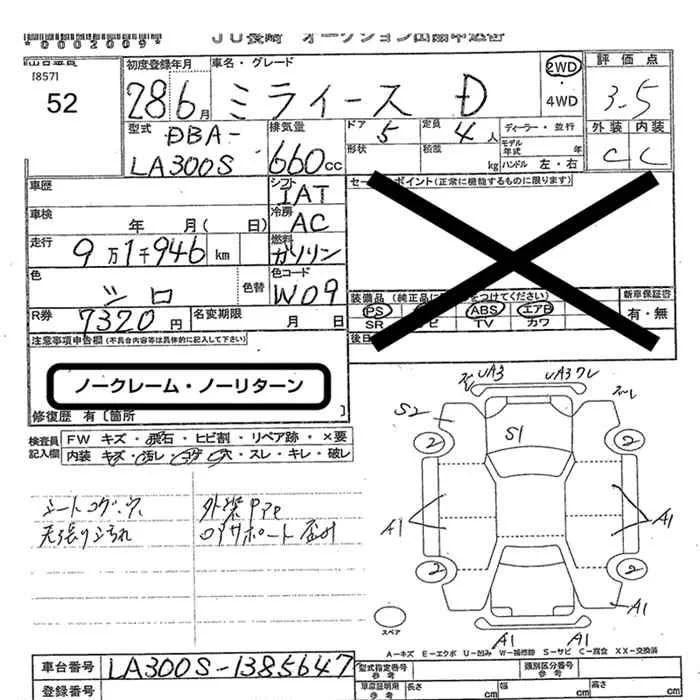 *0002009*
JU長崎 オークション出品申込書
[857]
52
初度登録年月
28 6月
車名・グレード
ミライース D
2WD
・
4WD
評価点
3.5
型式
DBA-
LA300S
排気量
660cc
ドア 5
定員 4人
ディーラー・並行
形状
積載 kg
モデル年式 年
ハンドル 左・右
外装 内装
C C
車歴
シフト
IAT
セールスポイント(正常に機能するものに限ります)
車検
年 月( 日)
冷房
AC
走行
9万1千946km
燃料
ガソリン
色
シロ
色替
色コード
W09
装備品(純正品に をつけてください)
PS ABS エアB
SR TV カワ
新車保証書
有・無
R券
7320円
名変期限
月 日
注意事項申告欄(不具合内容等は具体的に記入して下さい)
ノークレーム・ノーリターン
修復歴 有〔箇所 〕
検査員記入欄
FW キズ・飛石・ヒビ割・リペア跡・×要
内装 キズ・汚レ・コゲ・穴・スレ・キレ・破レ
シートコゲ・穴
天張りヨゴレ
外装
UA3
UA3ワレ
S2
S1
2
2
A1
A1
2
2
A1
A1
A1
スペア
A-キズ E-エクボ U-凹み W-補修跡 S-サビ C-腐食 XX-交換済
車台番号
LA300S-1385647
登録番号
型式指定番号
参考
類別区分番号
参考
車庫証明用
参考
長さ cm
幅 cm
高さ cm